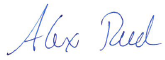 Alex Reed